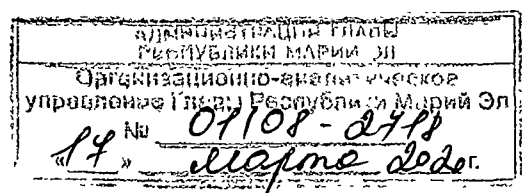 АДМИНИСТРАЦИЯ ГЛАВЫ
РЕСПУБЛИКИ МАРИЙ ЭЛ
Организационно-аналитическое
управление Главы Республики Марий Эл
№ 01108-2718
«17» марта 2020г.